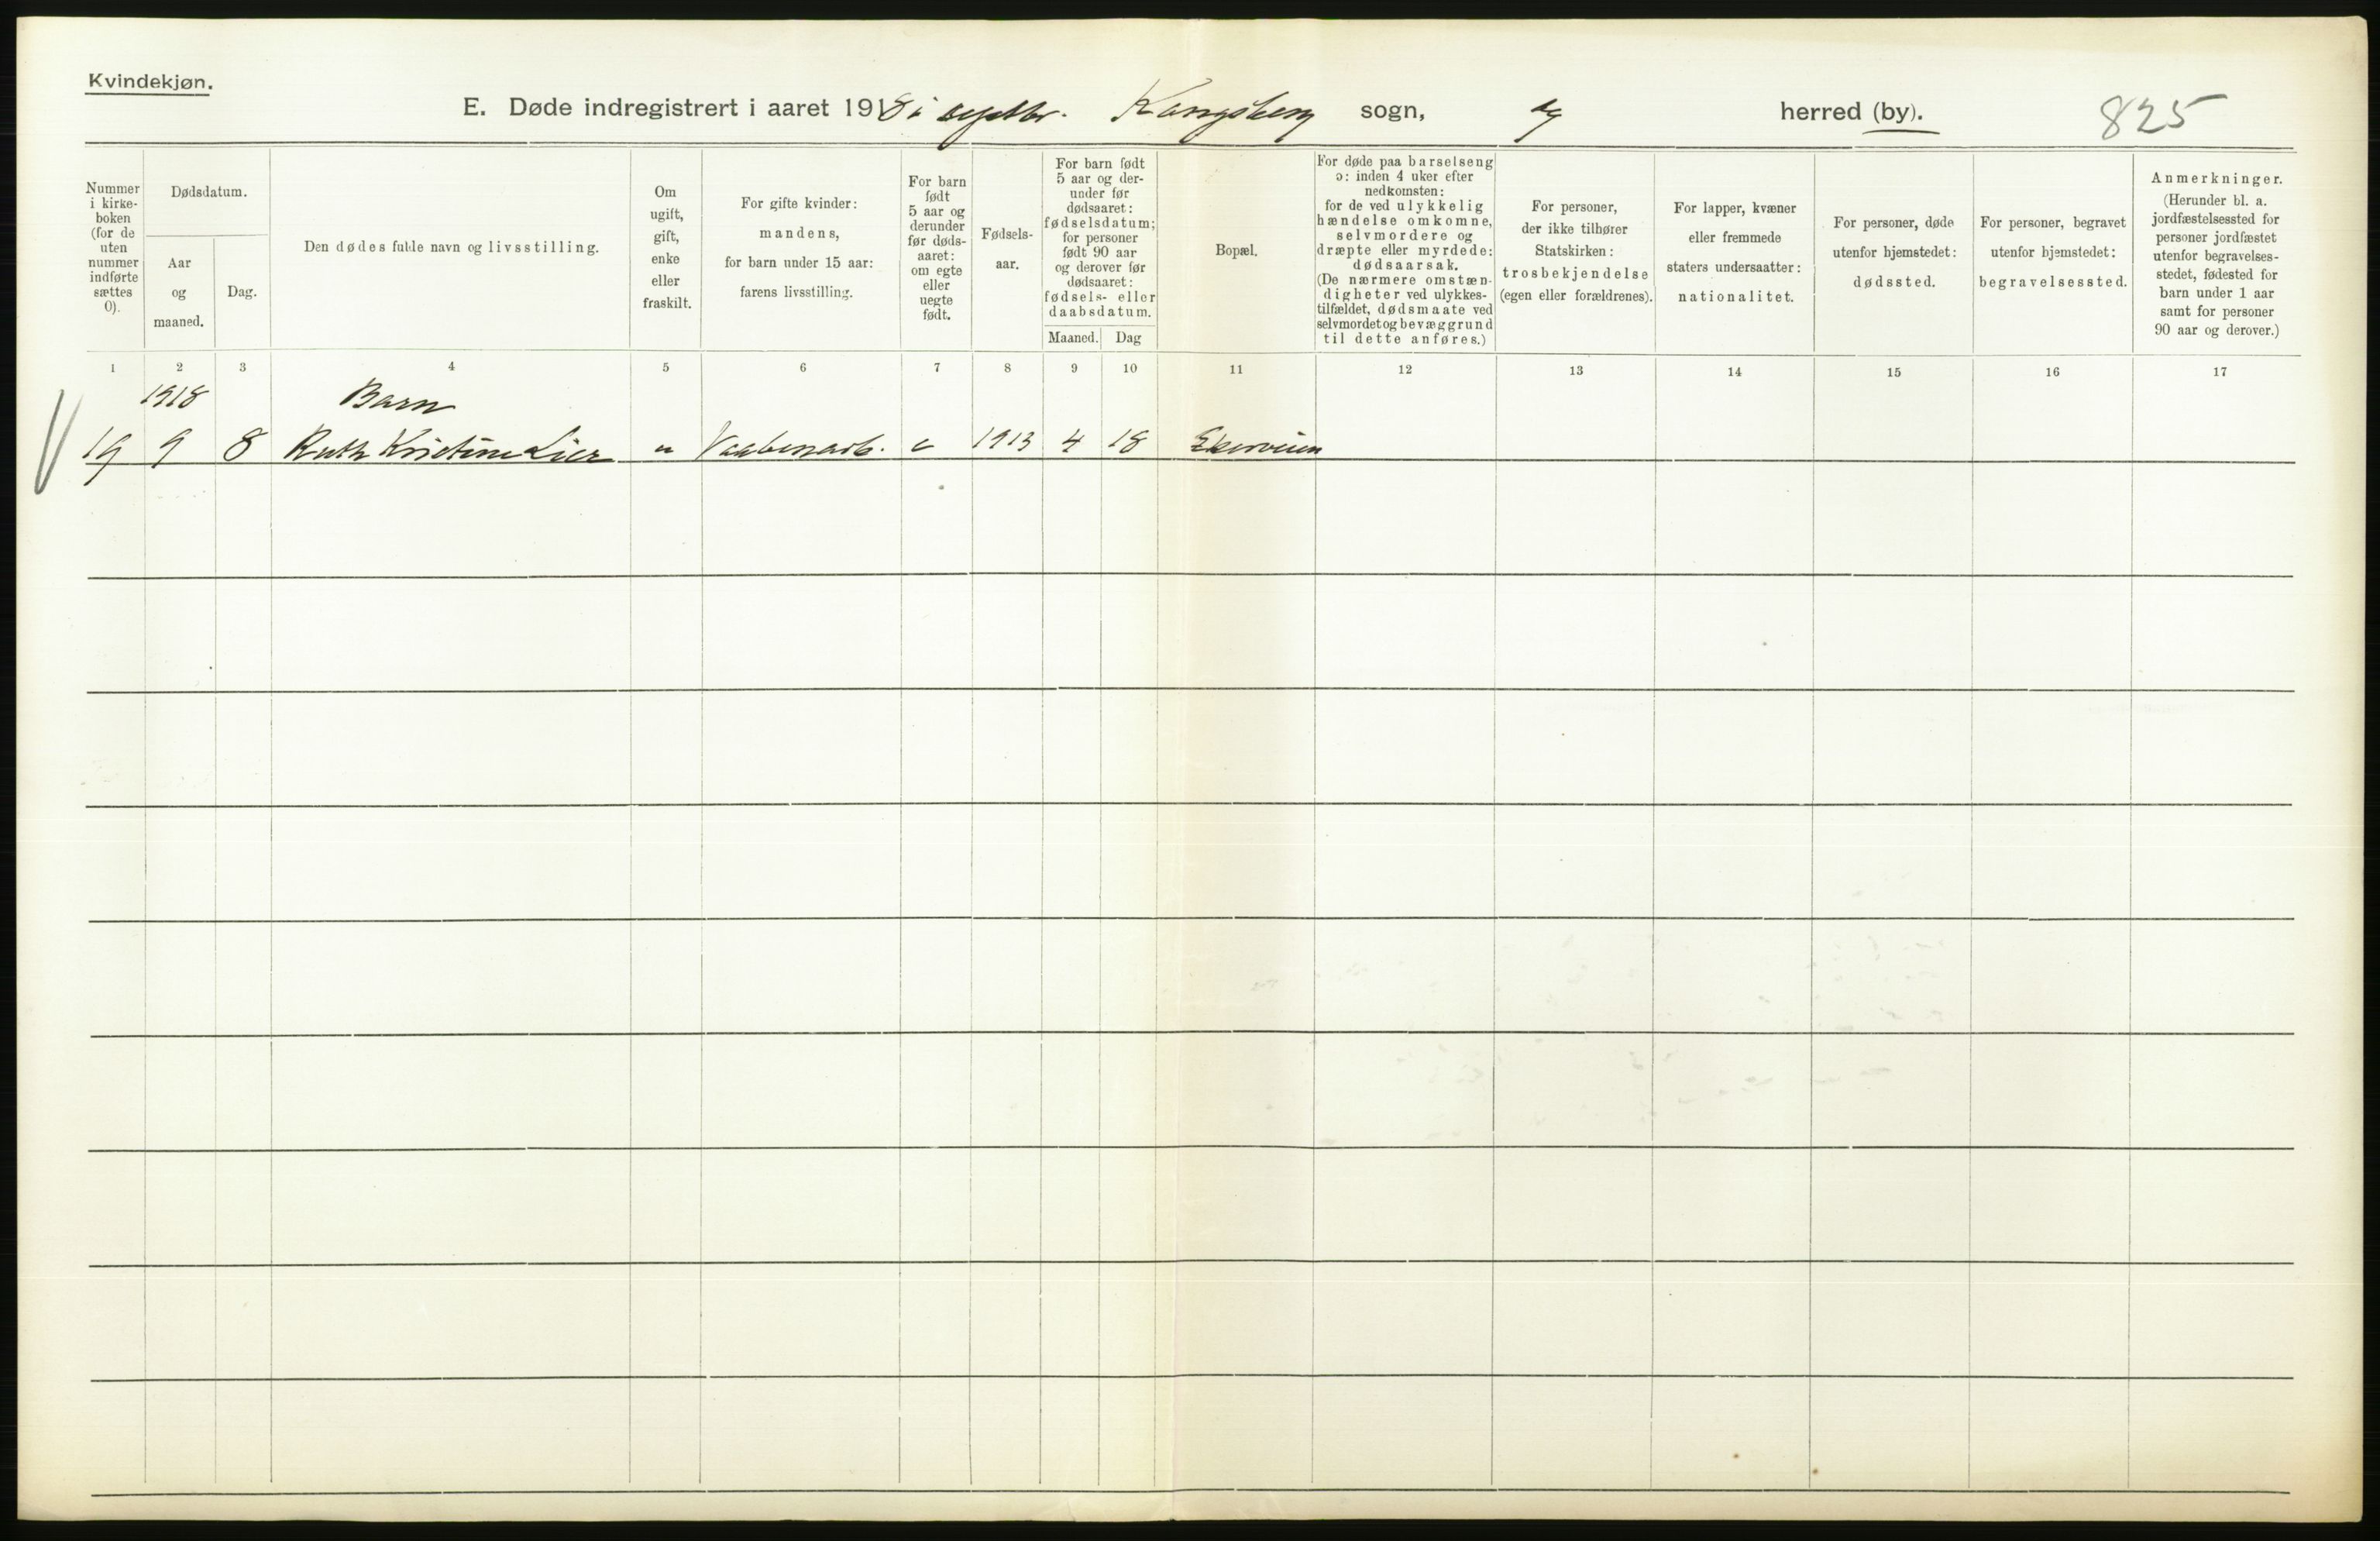 Kvindekjøn.
E. Døde indregistrert i aaret 1918 i septbr. Kongsberg sogn, og herred (by). 825
Nummer i kirke-boken (for de uten nummer indførte sættes 0).
Dødsdatum.
Aar og maaned.
Dag.
Den dødes fulde navn og livsstilling.
Om ugift, gift, enke eller fraskilt.
For gifte kvinder: mandens, for barn under 15 aar: farens livsstilling.
For barn født 5 aar og derunder før døds-aaret: om egte eller uegte født.
Fødsels-aar.
For barn født 5 aar og der-under før dødsaaret: fødselsdatum; for personer født 90 aar og derover før dødsaaret: fødsels- eller daabsdatum.
Maaned. Dag
Bopæl.
For døde paa barselseng ɔ: inden 4 uker efter nedkomsten: for de ved ulykkelig hændelse omkomne, selvmordere og dræpte eller myrdede: dødsaarsak. (De nærmere omstæn-digheter ved ulykkes-tilfældet, dødsmaate ved selvmordet og bevæggrund til dette anføres.)
For personer, der ikke tilhører Statskirken: trosbekjendelse (egen eller forældrenes).
For lapper, kvæner eller fremmede staters undersaatter: nationalitet.
For personer, døde utenfor hjemstedet: dødssted.
For personer, begravet utenfor hjemstedet: begravelsessted.
Anmerkninger. (Herunder bl. a. jordfæstelsessted for personer jordfæstet utenfor begravelses-stedet, fødested for barn under 1 aar samt for personer 90 aar og derover.)
1 2 3 4 5 6 7 8 9 10 11 12 13 14 15 16 17
1918 Barn
19 9 8 Ruth Kristine Lier u Vaabenarb. e 1913 4 18